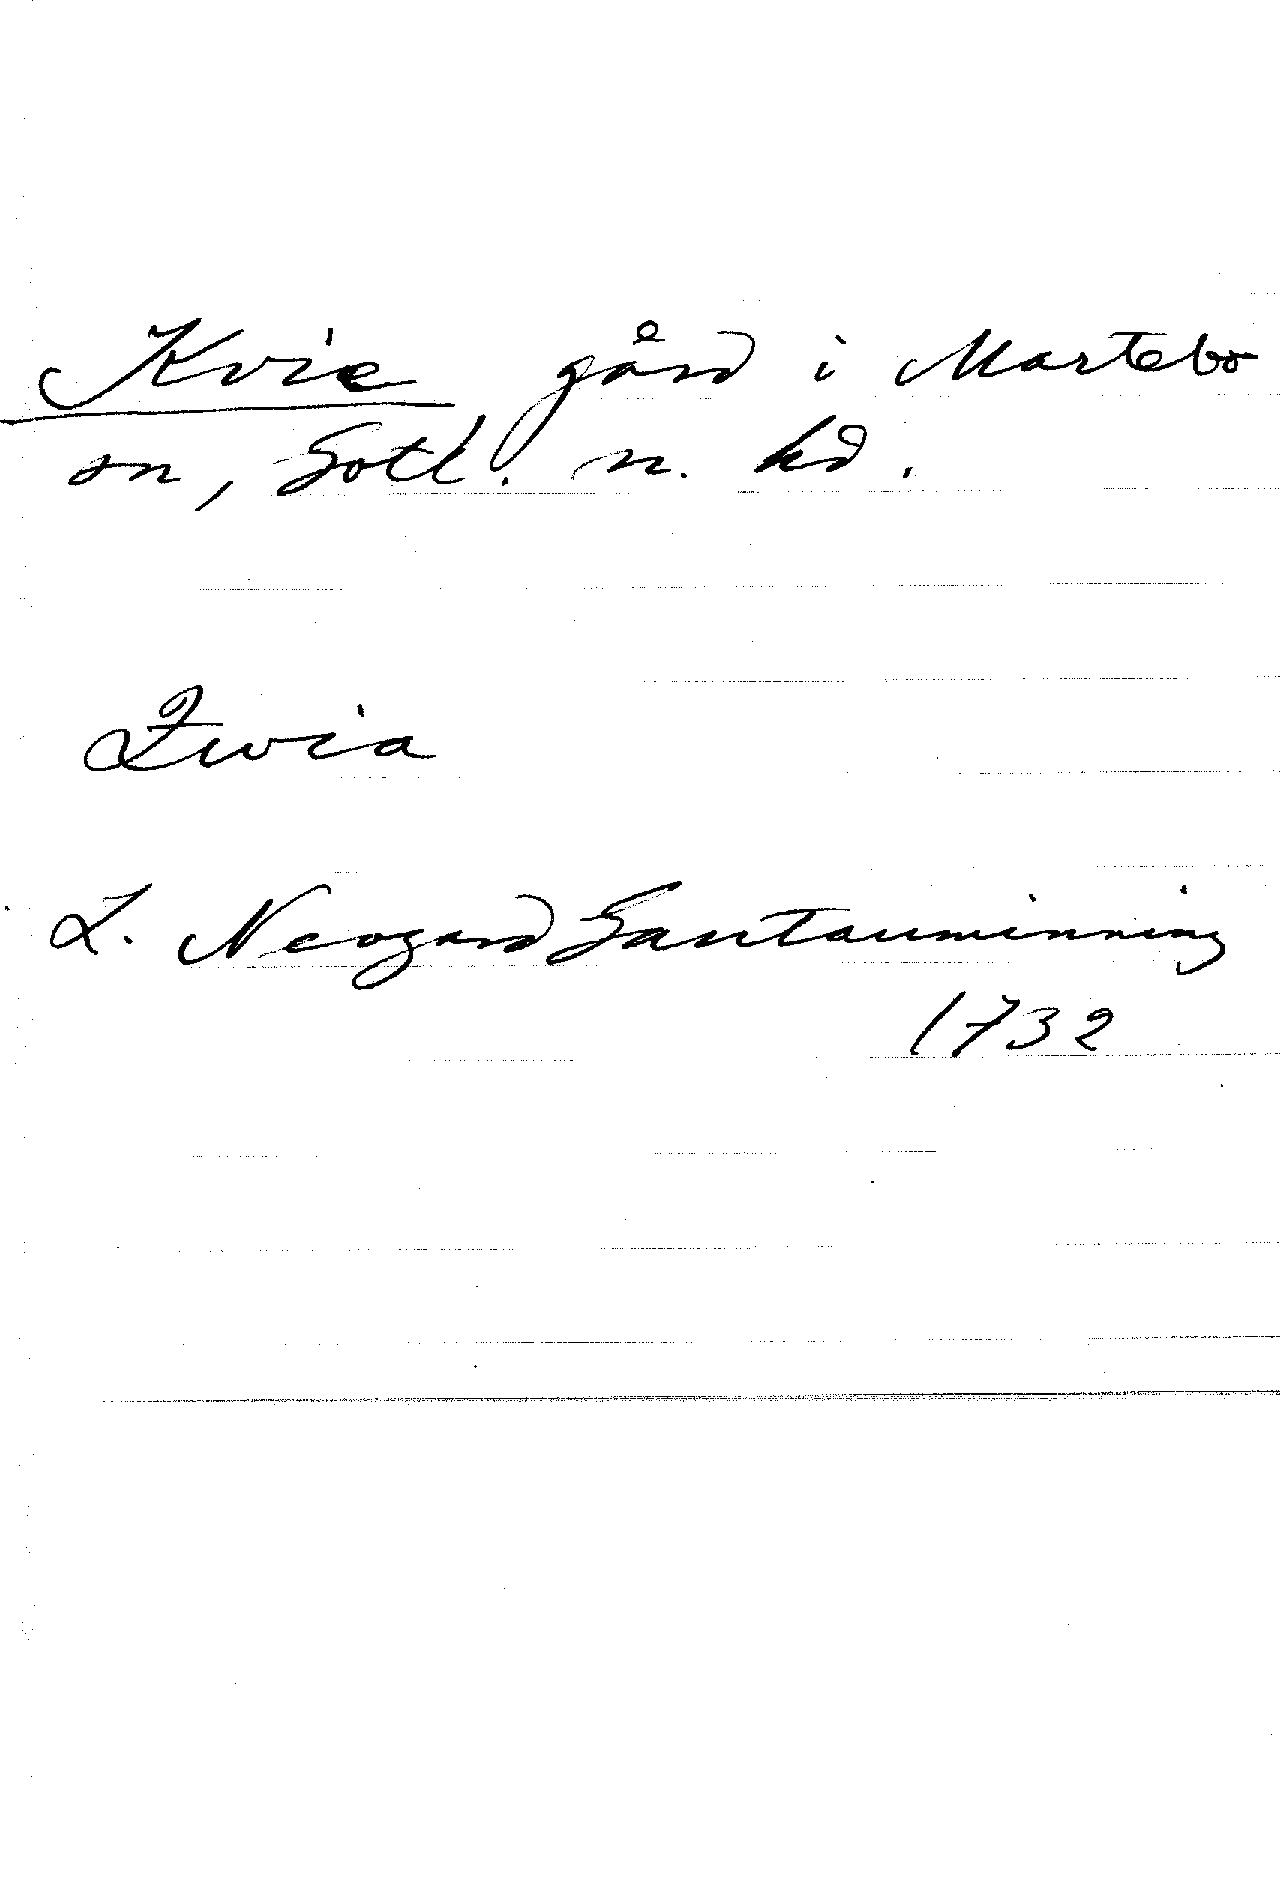 Kvie gård i Martebo
sn, Gotl. n. hd.
Qwia
L. Neogard Gautauminning
1732